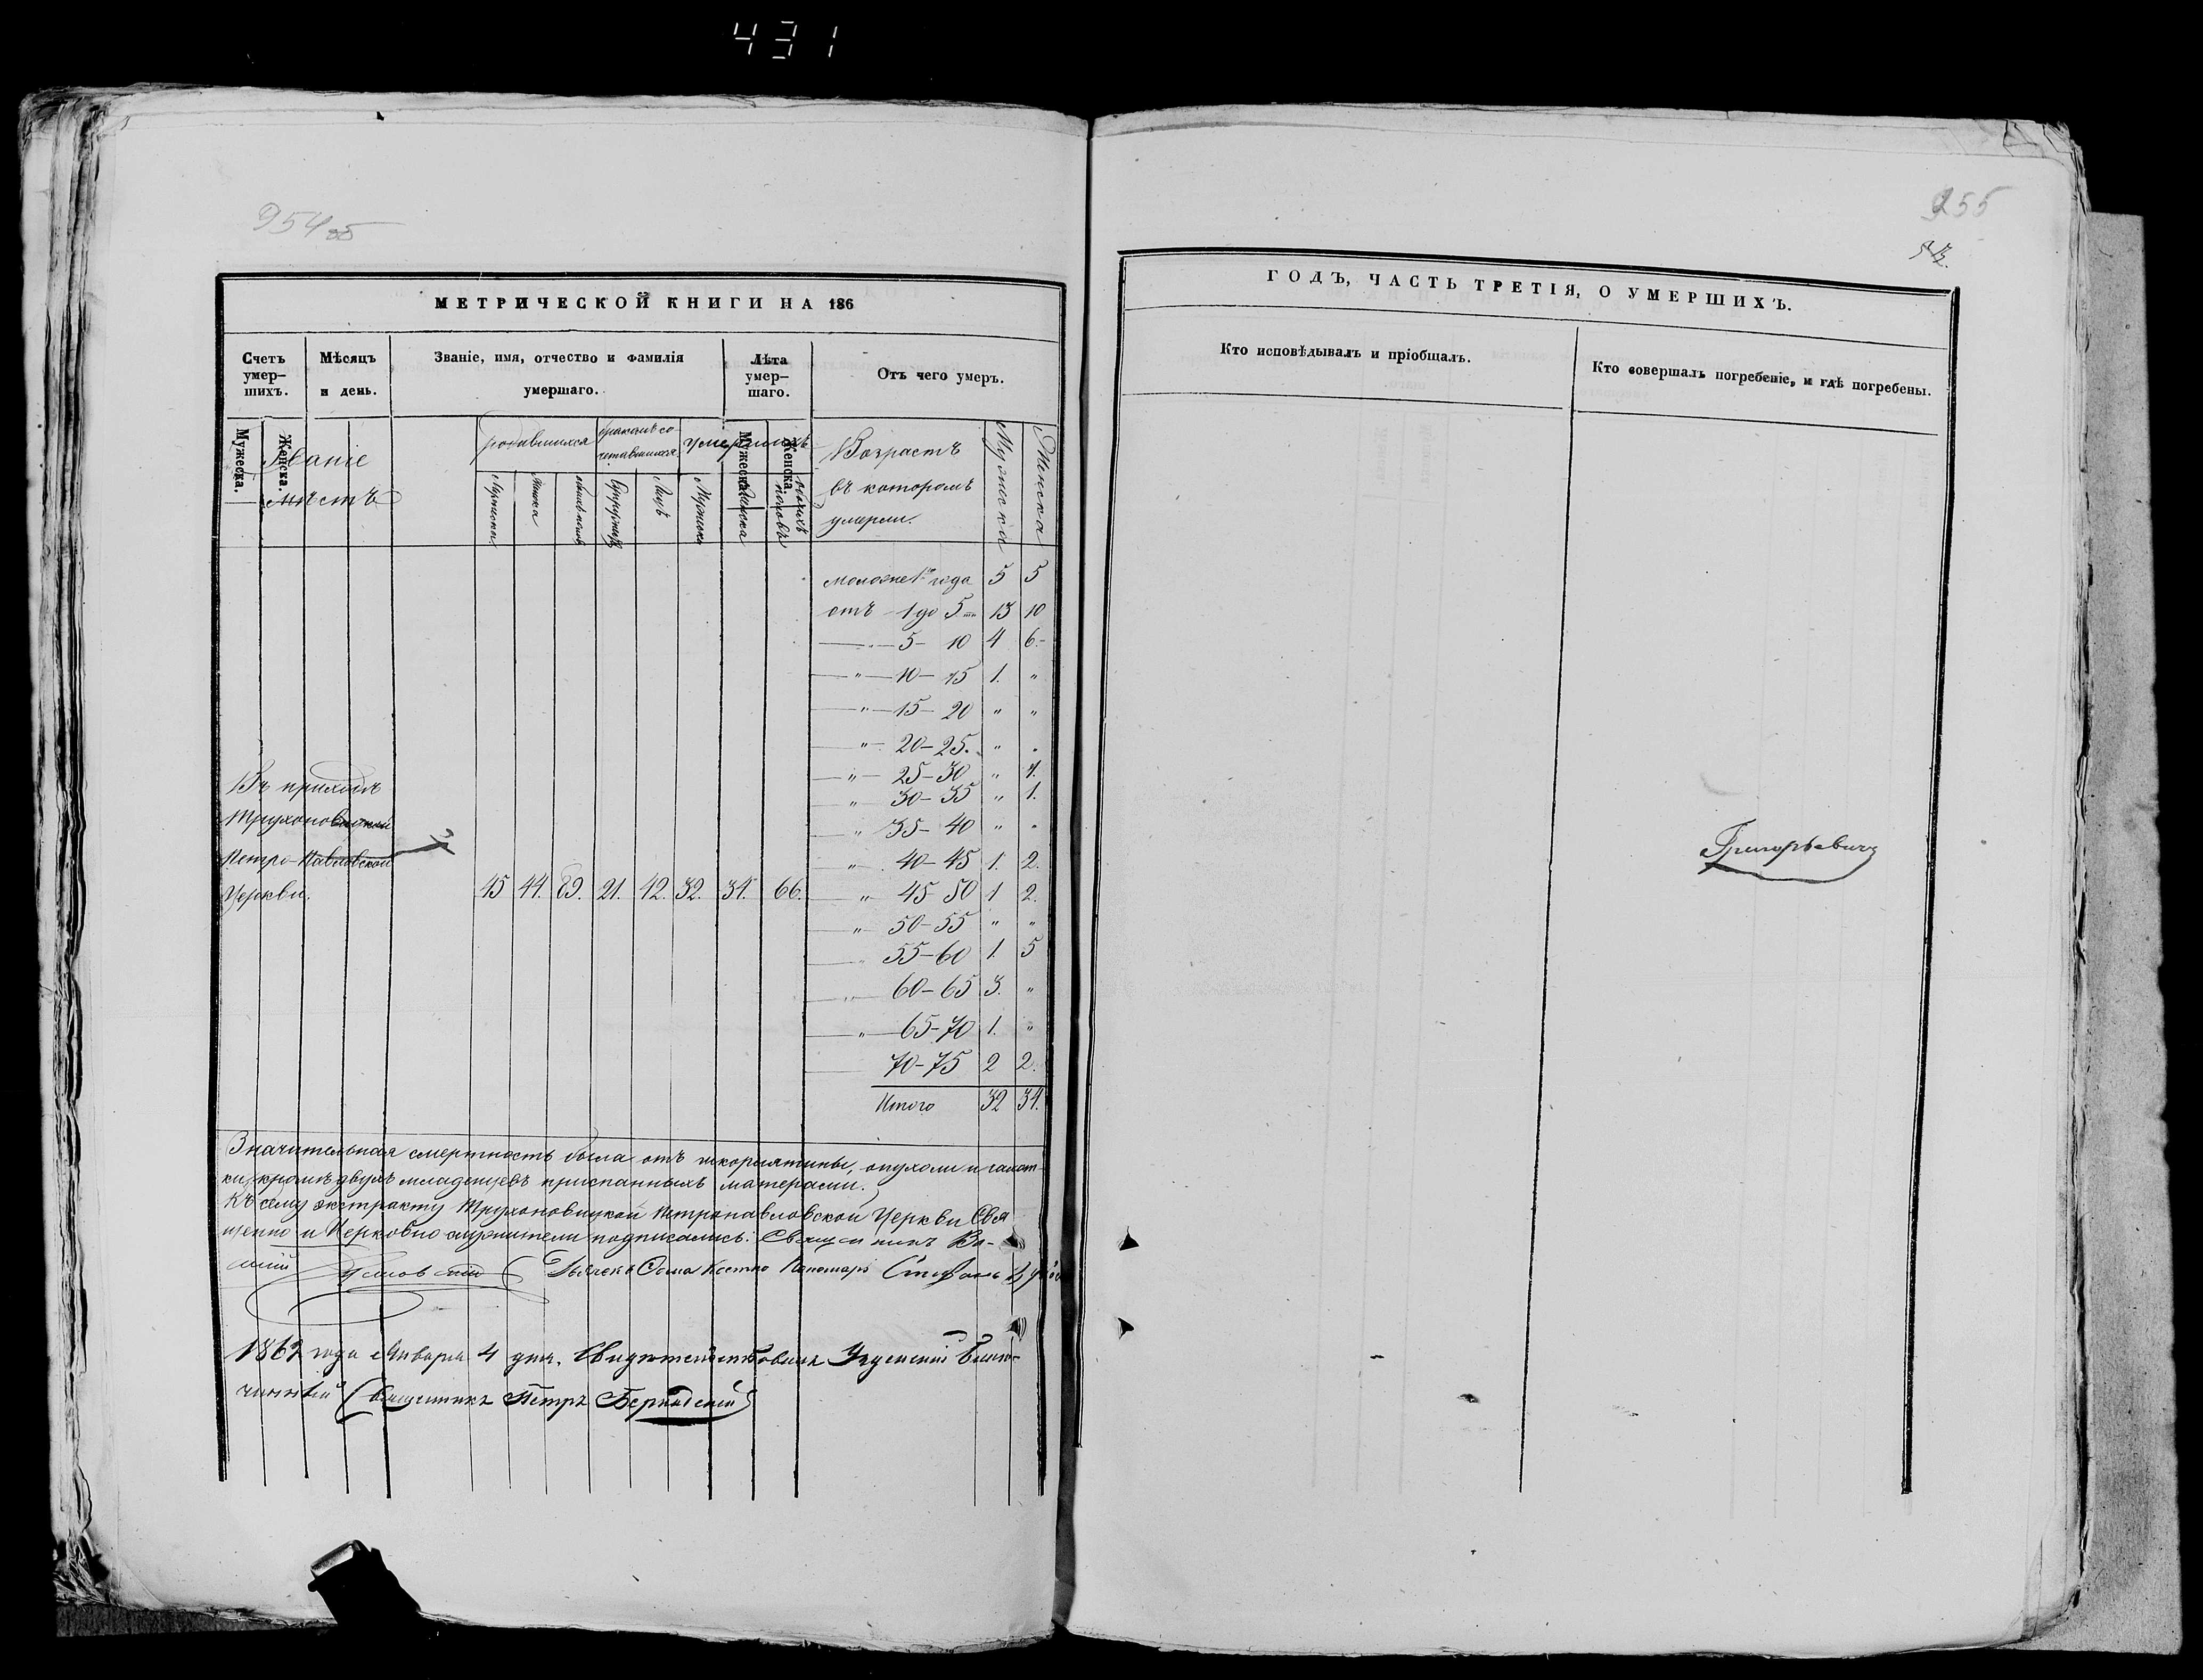 431
954 об
МЕТРИЧЕСКОЙ КНИГИ НА 186
Счетъ умер-шихъ.
Мѣсяцъ и день.
Званіе, имя, отчество и фамилія умершаго.
Лѣта умер-шаго.
Отъ чего умеръ.
Мужеска.
Женска.
Мужеска.
Женска.
Званіе
мѣстъ
родившихся
бракомъ со-
четавшихся
умершихъ
Мужеска
Женска
обоихъ половъ
Супружествъ
Лицъ
Мужеска
Женска
обоихъ половъ
Возрастъ
въ которомъ
умерли.
Мужеска
Женска
моложе 1го года 5 5
отъ 1 до 5ти 13 10
— " — 5 - 10 4 6
— " — 10 - 15 1. "
— " — 15 - 20 " "
— " — 20 - 25. " "
— " — 25 - 30 " 1.
— " — 30 - 35 " 1.
— " — 35 - 40 " "
— " — 40 - 45 1. 2.
— " — 45 50 1 2.
— " — 50 - 55 " "
— " — 55 - 60 1. 5
— " — 60 - 65 3. "
— " — 65 - 70 1. "
70 - 75 2 2.
Итого 32 34.
Въ приходѣ
Трухоновицкой
Петро-Павловской
Церкви. 45 44. 89. 21. 42. 32. 34. 66.
Значительная смертность была отъ скорлятины, опухоли и глист-
ки, кромѣ двухъ младенцевъ приспанныхъ матерями.
Къ сему экстракту Трухоновицкой Петропавловской Церкви Свя
щенно и Церковно служители подписались: Священникъ Ва-
силій Дьячекъ Сома Костко Пономарь Стефанъ
1862 года Января 4 дня. Свидѣтельствовалъ Узденскій Благо-
чинный Священникъ Петръ
955
ГОДЪ, ЧАСТЬ ТРЕТІЯ, О УМЕРШИХЪ.
Кто исповѣдывалъ и пріобщалъ.
Кто совершалъ погребеніе, и гдѣ погребены.
Григорьевичъ